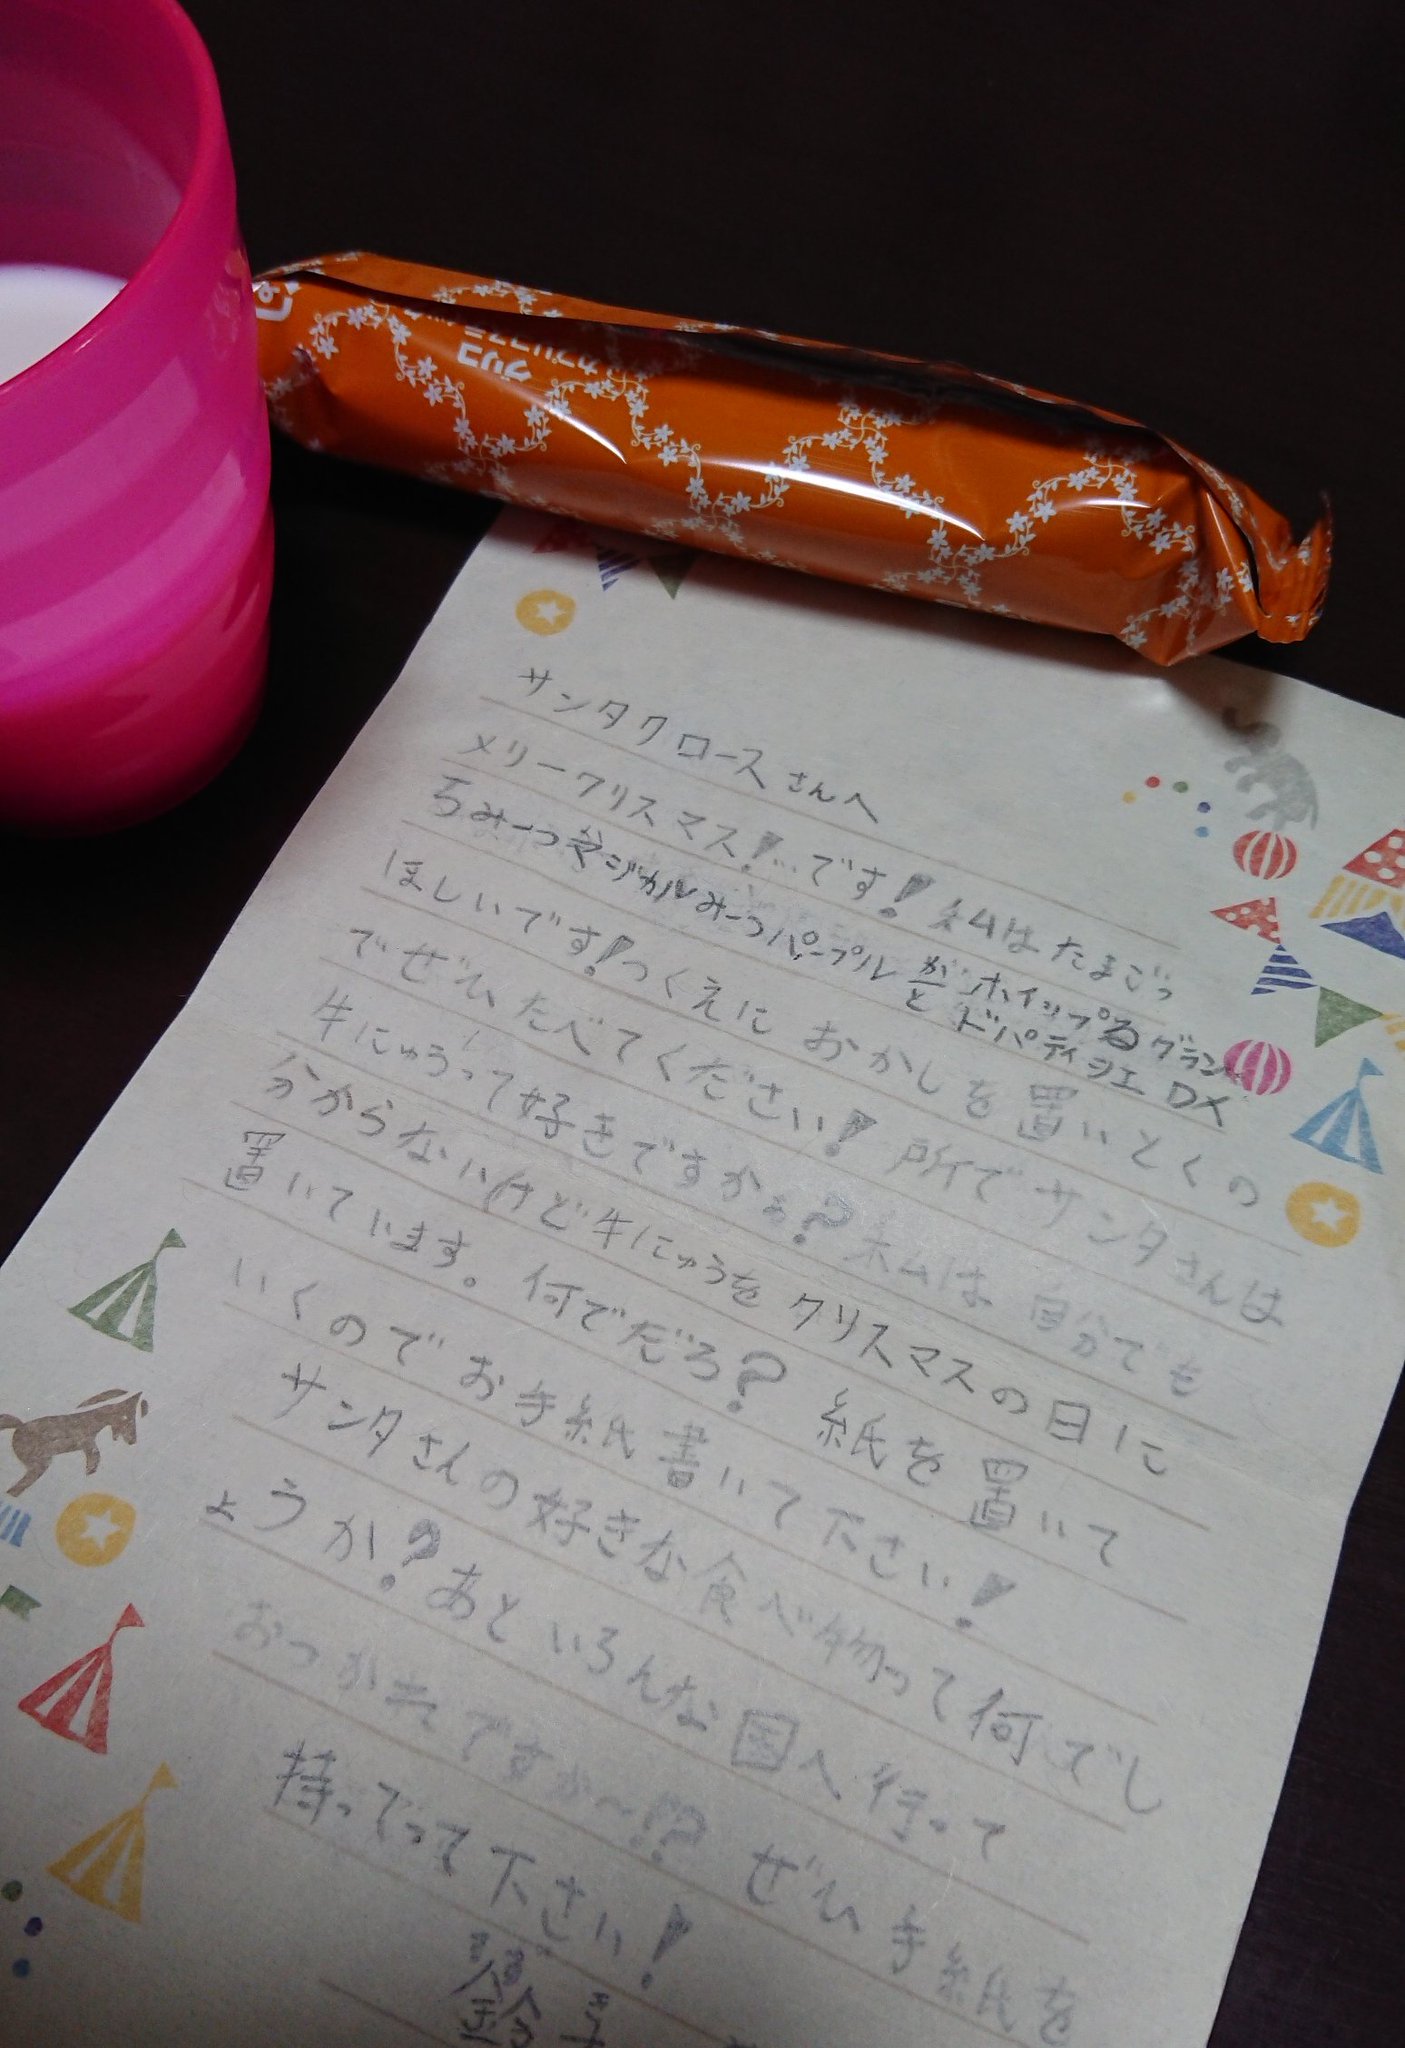 グリコ
サンタクロースさんへ
メリークリスマス!…です!私はたまごっ
ちみーつマジカルみーつパープルがホイップるグラン
と ドパティシエ DX
ほしいです!つくえにおかしを置いとくの
でぜひたべてください!所でサンタさんは
牛にゅうって好きですかぁ?私は自分でも
分からないけど牛にゅうをクリスマスの日に
置いています。何でだろ?紙を置いて
いくのでお手紙書いて下さい!
サンタさんの好きな食べ物って何でし
ょうか?あといろんな国へ行って
おつかれですか〜!?ぜひ手紙を
持ってって下さい!